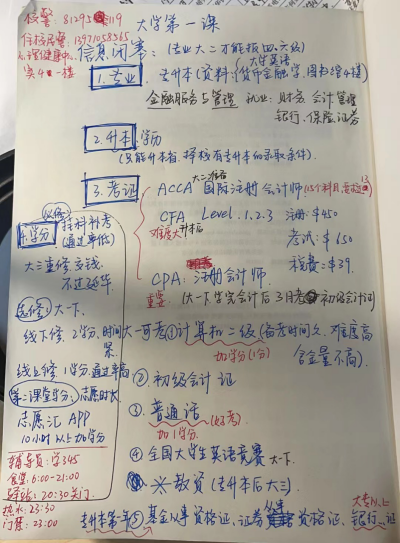 大学第一课
校警
信息闭塞：(专业大二才能报四.六级)
1.专业
专升本(资料:《货币金融学,图书馆4楼)
大学英语
金融服务与管理 就业:财务.会计管理
银行.保险.证券
2.升本.学历
(只能升本省.择校有专升本的录取条件).
3.考证
ACCA 国际注册会计师
CFA Level.1.2.3 注册:$450
难度大
考试:$650
税费:$39.
CPA:注册会计师.
重要:(大一下学完会计后3月考初级会计证)
必修
4.学分
挂科补考
(通过率低)
大三重修.交钱.
不过延毕
选修:大一下.
线下修.2学分.时间紧
线上修1学分.通过率高
第二课堂学分:志愿时长
志愿汇APP
10小时以上加学分
辅导员:学345
食堂:6:00-21:00
驿站:20:30关门.
热水:23:30
门禁:23:00
大一可考①计算机二级(备考时间久.难度高
加学分(1分)
含金量不高).
②初级会计证
③.普通话(好考)
加1学分.
④全国大学生英语竞赛 大一下.
※教资(专升本后大三).
⑤基金从业资格证、证券从业资格证、银行从证
大专以上